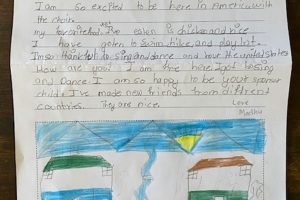 I am so excited to be here in America with
the choir.
my favorite food I've eaten is chicken and rice
I have gotten to swim, hike, and play tot.
Im so thankful to sing and dance and tour the united States
How are you? I am fine here. I get to sing
and Dance. I am so happy to be your sponsor
child. I've made new friends from different
countries. They are nice.
Love